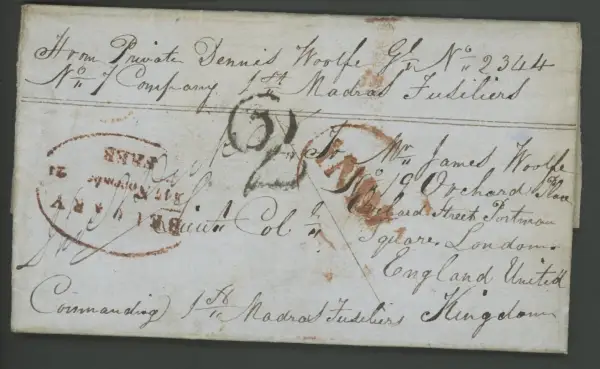 From Private Dennis Woolfe Gr No 2344
No 7 Company 1st Madras Fusiliers
To Mr James Woolfe
No 19 Orchard Place
Orchard Street Portman
Square London
England United
Kingdom
Lieut Col
Commanding 1st Madras Fusiliers
BELLARY
November
FREE
2
INDIA